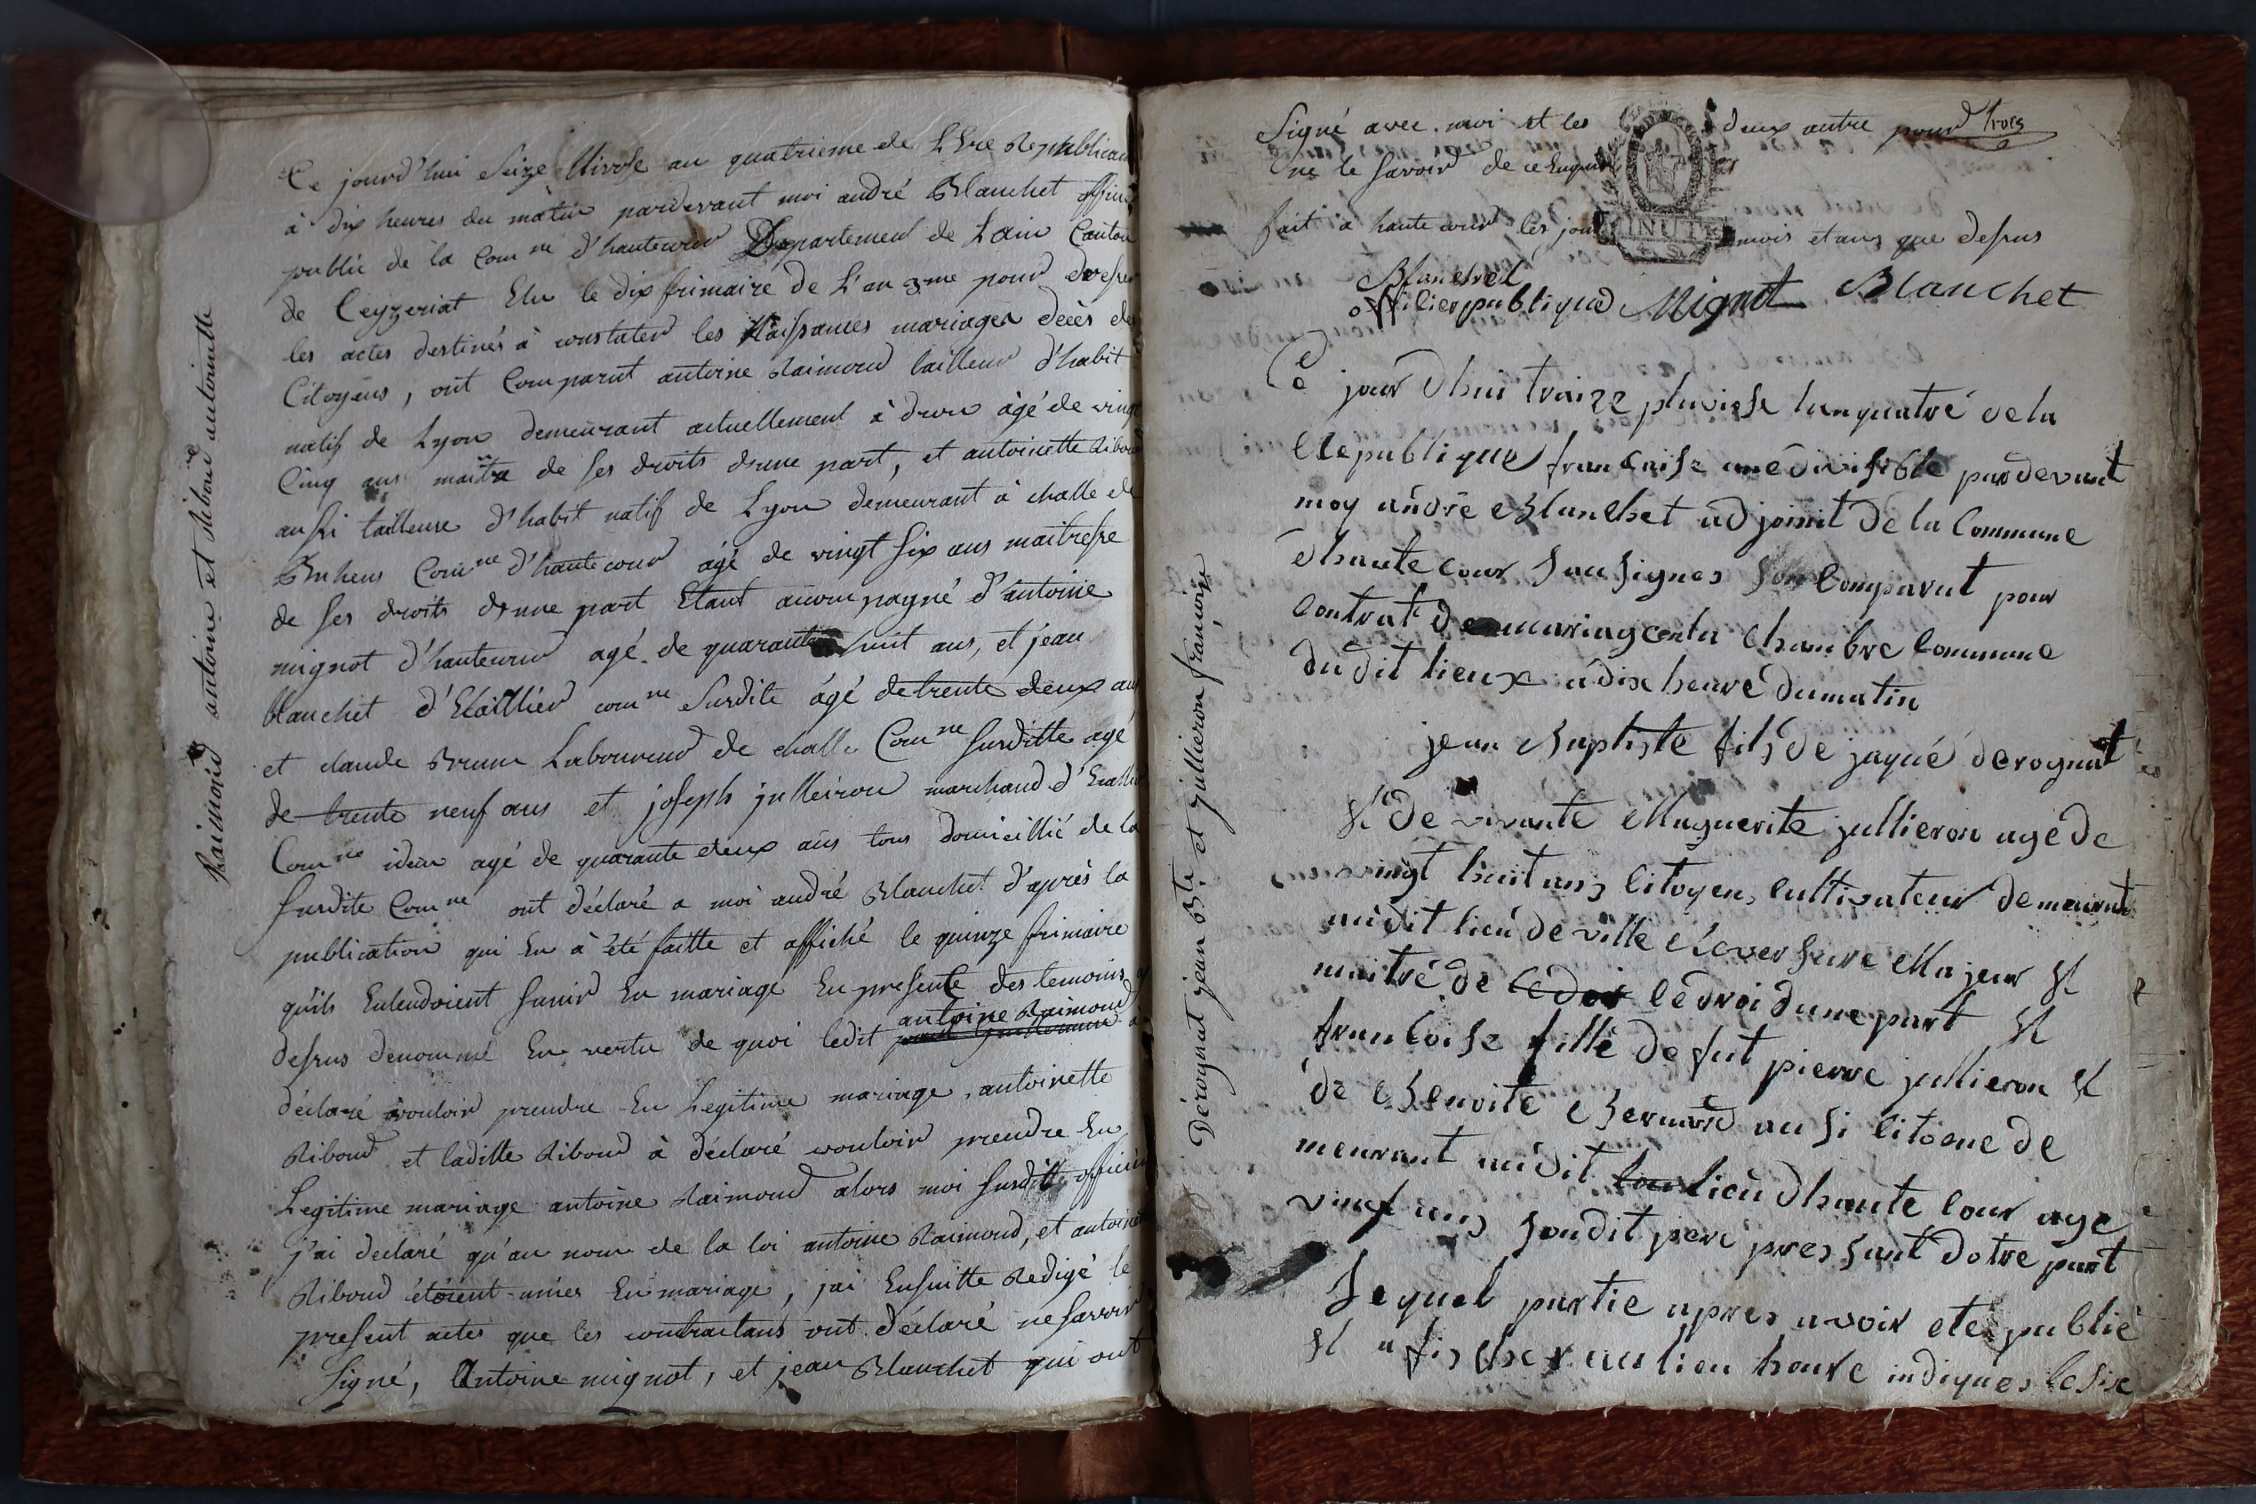 Raimond antoine et Riboud antoinette
Ce jourd'hui Seize Nivose an quatrieme de L'Ere Republicain
à dix heures du matin pardevant moi andré Blanchet officier
public de la Comne d'hautecour Département de Lain Canton
de Ceyzeriat Elu le dix frimaire de L'an 3me pour dresser
les actes destinés à constater les Naissances mariages décès des
Citoyens, ont Comparut antoine Raimond tailleur d'habit
natif de Lyon demeurant actuellement à drom âgé de vingt
Cinq ans maitre de ses droits d'une part, et antoinette Riboud
aussi tailleuse d'habit natif de Lyon demeurant à challe de
Bohens Comne d'hautecour âgé de vingt six ans maitresse
de ses droits d'une part Etant accompagné d'antoine
mignot d'hautecour agé de quarante huit ans, et jean
blanchet d'Etaillier comne Susdite âgé de trente deux ans
et claude Brun Laboureur de challe Comne susditte agé
de trente neuf ans et joseph julleiron marchand d'
Comne idem agé de quarante deux ans tous domicillié de la
susdite Comne ont déclaré a moi andré Blanchet d'après la
publication qui En à été faitte et affiché le quinze frimaire
qu'ils Entendoient s'unir En mariage En presente des temoins cy
dessus denommé En vertu de quoi ledit antoine Raimond a
déclaré vouloir prendre En Legitime mariage antoinette
Riboud et laditte Riboud à déclaré vouloir prendre En
Legitime mariage antoine Raimond alors moi susditte officier
j'ai declaré qu'au nom de la loi antoine Raimond, et antoinette
Riboud étoient unies En mariage, jai Ensuitte Redigé le
present actes que les contractans ont déclaré ne savoir
signé, Antoine mignot, et jean Blanchet qui ont
Signé avec moi et les deux autre pour
ne le savoir de ce Enquis
fait à hautecour les jour mois et ans que dessus
MINUTE
Blanchet
officier publique Mignot Blanchet
Dérognat jean Bte et Jullieron françoise
Ce jour dhui traize pluviose lan quatré de la
Republique francaise une édivisible pardevant
moy andré Blanchet adjoint de la Commune
dhaute cour sousignes son Comparut pour
Contrat de mariag enta Chambre Commune
du dit lieux a dix heure dumatin
jean Baptiste fils de jaque derognat
et de vivante Marguerite jullieron age de
vingt huit ans Citoyen Cultivateur demeurant
audit lieu de ville Reversure Majeur et
maitré de ce doi ce droi dune part et
francoise fille de fut pierre jullieron et
de Benoite Bernard ausi citoene de
meurant audit lieu dhaute Cour age
vinct ans son dit pere pres sant dotre part
Lequel partie apres avoir eté publié
et afische aux lieu heure indiques le six